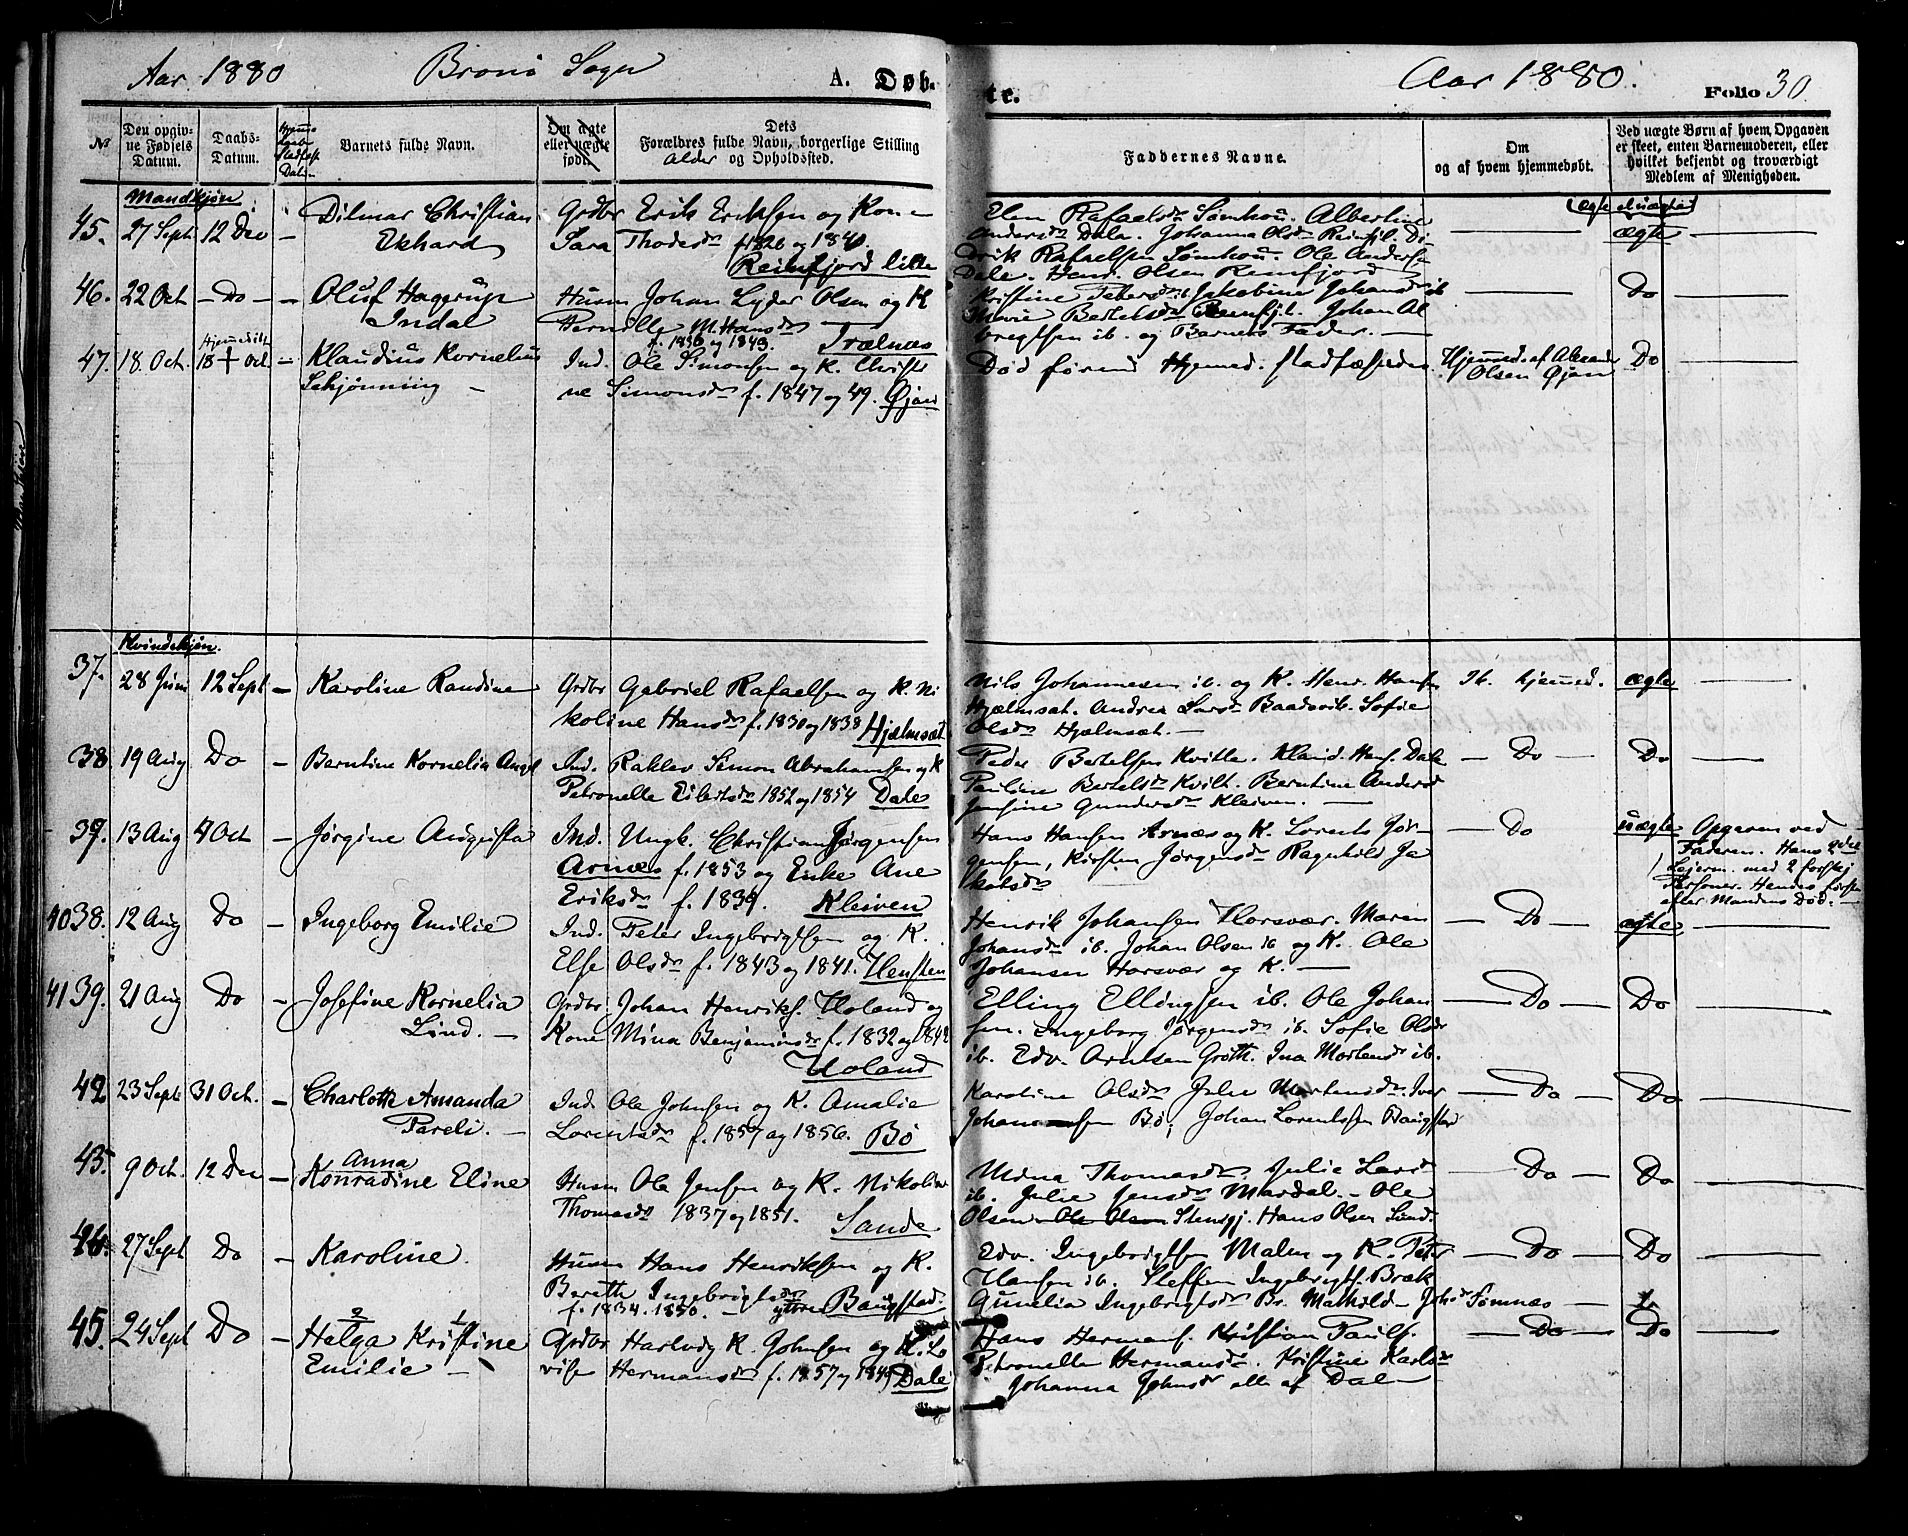 Aar 1880 Brønø Sogn A. Døb-
te. Aar 1880. Folio 30
№ Den opgivne Fødsels Datum. Daabs-Datum. Barnets fulde Navn. Om ægte eller uægte født. Forældres fulde Navn, Alder borgerlige Stilling og Opholdssted.
Faddernes Navne. Om og af hvem hjemmedøbt. Ved uægte Børn af hvem Opgaven er skeet, enten Barnemoderen, eller hvilket bekjendt og troværdigt Medlem af Menigheden.
Mandkjøn
45. 27 Sept 12 Dec – Ditmar Christian Grdbr Erik Eriksen og Kone
Ekhard Sara Thodesdr f. 1826 og 1840.
Reinfjord lille
Elen Rafaelsdr Sømhou. Albertine
Andersdr Dale. Johanna Olsdr Reinfj. Di-
drik Rafaelsen Sømhou. Ole Andersen
Dale. Henr. Olsen Reinfjord
ægte
46. 22 Oct – Do – – Oluf Hagerup Husm Johan Lyder Olsen og K
Indal Pernille M. Hansdr
f. 1850 og 1843. Trælnæs
Kristine Petersdr ib. Jakobine Johansdr ib
Marie Bertelsdr Reinfj. Johan Al
bregtsen ib. og Barnets Fader. – Do
47. 18 Oct. Hjemmedøbt 18 + Oct. – Klaudius Kornelius Ind. Ole Simonsen og K. Christi
Schjønning – ne Simonsdr f. 1847 og 49. Øjan
Død førend Hjemmed. stadfæstedes Hjemmed. af Alexand Do
Olsen Øjan
Kvindekjøn.
37. 28 Juni 12 Sept – Karoline Randine Grdbr Gabriel Rafaelsen og K. Ni
koline Hansdr f. 1830 og 1838 Hjælmsæt
Nils Johannesen ib. og K. Henr. Hansen Ik. hjemmed. ægte
Hjælmsæt. Andrea Larsdr Baadsvik. Sofie
Olsdr Hjælmsæt. –
38 19 Aug Do – Berntine Kornelia Angel Ind. Raklev Simon Abrahamsen og K
Petronelle Eilertsdr 1852 og 1854 Dale
Peder Bertelsen Kvitle. Klaud. Hans. Dale – Do – Do
Pauline Bertelsdr Kvilt. Berntine Andersd
Jensine Gundersdr Kleiven. –
39. 13 Aug 4 Oct – Jørgine Augusta Ind. Ungk. Christian Jørgensen
Arnæs f. 1853 og Enke Ane
Eriksdr f. 1839. Kleiven
Hans Hansen Arnæs og K. Lorents Jør- – Do uægte Opgaven ved
gensen, Kirsten Jørgensdr Ragnhild Ja Faderen. Hans 2det
kobsdr Leierm. med 2 forskj
Personer. Hendes første
efter Mandens Død. –
40 38. 12 Aug Do – Ingeborg Emilie Ind. Peter Ingebrigtsen og K.
Else Olsdr f. 1843 og 1841. Hensten
Henrik Johansen Horsvær. Maren – Do – ægte
Johansdr ib. Johan Olsen ib og K. Ole
Johansen Horsvær og K. –
41 39. 21 Aug Do – Josefine Kornelia Grdbr Johan Henriks. Holand og
Lind. – Kone Mina Benjaminsdr f. 1832 og 1842
Holand
Elling Ellingsen ib. Ole Johan – Do – Do
sen. Ingeborg Jørgensdr ib. Sofie Olsdr
ib. Edv. Arntsen Grøtt. Ina Mortensdr ib.
42 23 Sept 31 Oct. – Charlotte Amanda Ind. Ole Johnsen og K. Amalie
Pareli. – Lorentsdr f. 1857 og 1856. Bø
Karoline Olsdr Julie Mortensdr. Iver – Do – Do
Johansen Bø, Johan Lorentssen Baugstad
43. 9 Oct. 12 Dec – Anna
Konradine Eline Husm Ole Jensen og K. Nikoline
Thomasdr 1837 og 1851. Sande
Mina Thomasdr. Julie Larsd – Do – Do
ib. Julie Jensdr Mardal. – Ole
Olsen Ole Olsen Stensgj. Hans Olsen Lund.
27 Sept Do – Karoline. Husm Hans Henriksen og K.
Bereth Ingebrigtsdr
f. 1834. 1850. – ytre Baugstad.
Edv. Ingebrigtsen Malm og K. Peter – Do – Do
Hansen ib. Steffen Ingebrigts. Bræk
Gunelia Ingebrigtsdr Br. Mathild– Johsd Sømnæs –
45. 24 Sept Do – 2 1
Helga Kristine Grdbr Hartvig K. Johnsen og K. Lo
Emilie – vise Hermansdr f. 1857 og 1849 Dale
Hans Hermans. Kristian Pauls. – Do – Do
Petronelle Hermansdr. Kristine Karlsdr
Johanna Johnsdr alle af Dal –